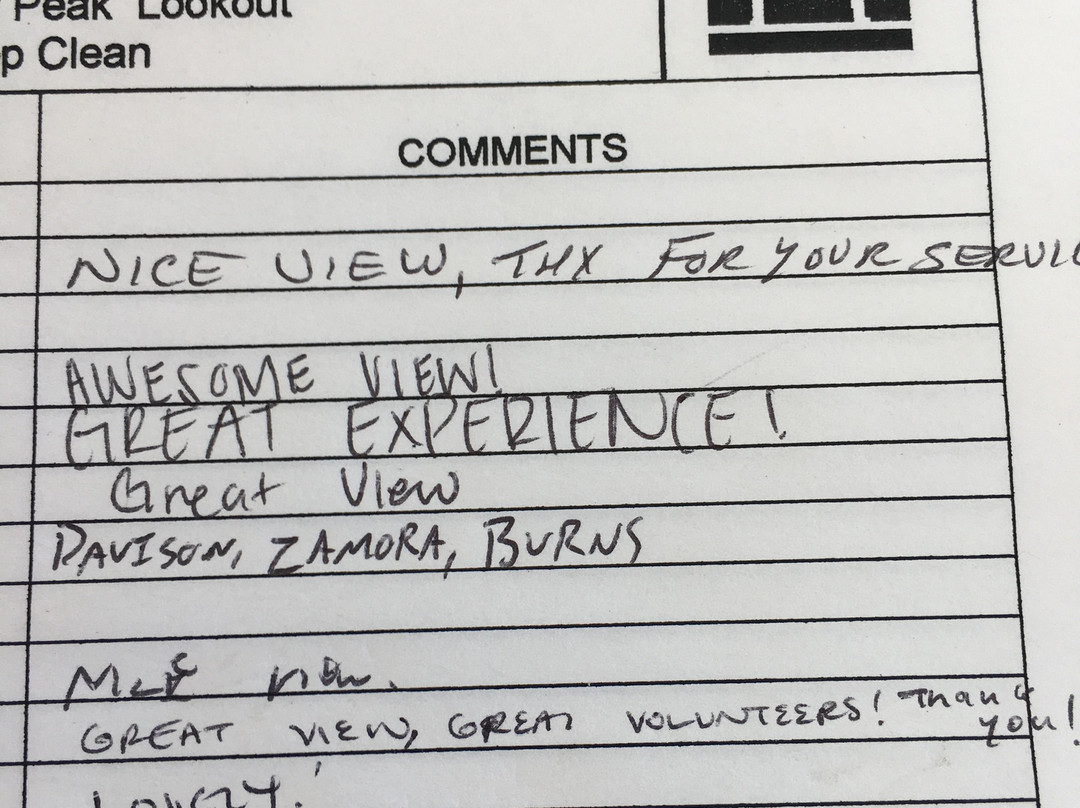 Peak Lookout
p Clean
COMMENTS
NICE VIEW, THX FOR YOUR SERVIC
AWESOME VIEW!
GREAT EXPERIENCE!
Great View
DAVISON, ZAMORA, BURNS
view.
GREAT VIEW, GREAT VOLUNTEERS! Thank
you!
LOVELY!